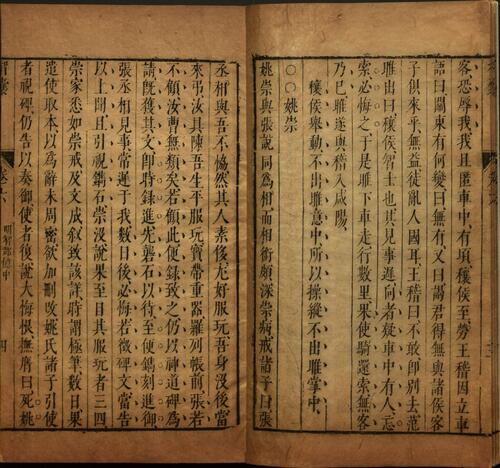 客恐辱我我且匿車中有頃穰侯至勞王稽因立車
語曰關東有何變曰無有又曰謁君得無與諸侯客
子俱來乎無益徒亂人國耳王稽曰不敢卽別去范
雎出曰穰侯智士也其見事遲向者疑車中有人忘
索必悔之于是雎下車走行數里果使騎還索無客
乃已雎遂與稽入咸陽
穰侯舉動不出雎意中所以操縱不出雎掌中
○○姚崇
姚崇與張說同爲相而相銜頗深崇病戒諸子曰張
丞相與吾不愜然其人素侈尤好服玩吾身沒後當
來弔汝具陳吾生平服玩寶帶重器羅列帳前張若
不顧汝曹無類矣若顧此便錄致之仍以神道碑爲
請旣獲其文卽時錄進先礱石以待至便鐫刻進御
張丞相見事常遲于我數日後必悔若徵碑文當告
以上聞且引視鐫石崇沒說果至目其服玩者三四
崇家悉如崇戒及文成叙致該詳時謂極筆數日果
遣使取本以爲辭未周密欲加刪改姚氏諸子引使
者視碑仍告以奏御使者復說大悔恨撫膺曰死姚
卷六
明智部億中
四